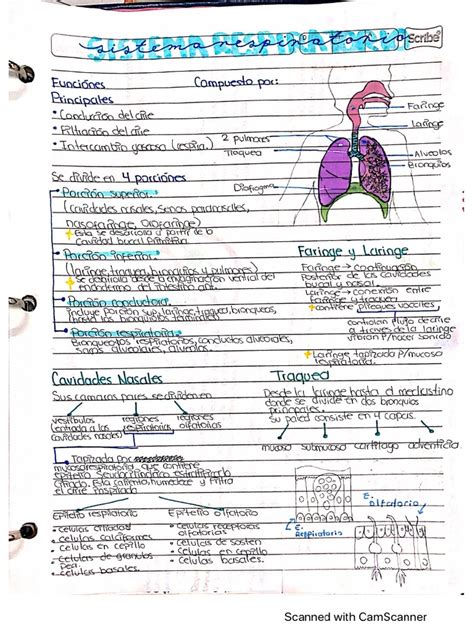 sistema respiratorio
Scribe
Funciónes
Principales
Compuesto por:
• Conducion del aire
• Filtración del aire
• Intercambio gaseoso (respira.)
2 pulmones
Traquea
Diafragma
Faringe
Laringe
Alveolos
Bronquios
Se divide en 4 porciónes
Porción superior.
(cavidades nasales, senos paranasales,
nasofaringe, Orofaringe)
Esta se desarrolla a partir de la
cavidad bucal primitiva
Porción inferior.
(laringe, traquea, bronquios y pulmones)
Se desarrolla desde la invaginación ventral del
endodermo del intestino ant.
Porción conductora.
incluye porción sup, laringe, traquea, bronquios,
hasta los bronquiolos terminales
Porción respiratoria.
Bronqueolos respiratorios, conductos alveolares,
sacos alveolares, alveolos.
Faringe y Laringe
Faringe → Continuación
posterior de las cavidades
bucal y nasal.
Laringe → conexión entre
Faringe y traquea
contiene pliegues vocales,
controlan flujo de aire
a través de la laringe
vibran p/hacer sonido
Laringe tapizada p/mucosa
respiratoria.
Cavidades Nasales
Sus camaras pares se dividen en
vestibulos
(entrada a las
cavidades nasales)
regiones
respiratorias,
regiones
olfatorias
Tapizada por
mucosa respiratoria, que contiene
Epitelio Seudocilindrico estratificado
Ciliado. Esta calienta, humedece y filtra
el aire inspirado
Epitelio respiratorio
• celulas ciliadas
• celulas caliciformes
• celulas en cepillo
• celulas de granulos
• celulas basales.
Epitelio olfatorio
• celulas receptoras
olfatorias
• celulas de sosten
• celulas en cepillo
• celulas basales.
Traquea
Desde la laringe hasta el mediastino
donde se divide en dos bronquios
principales.
Su pared consiste en 4 capas.
mucosa submucosa cartilago adventicia
E. Respiratorio
E. olfatorio
Scanned with CamScanner